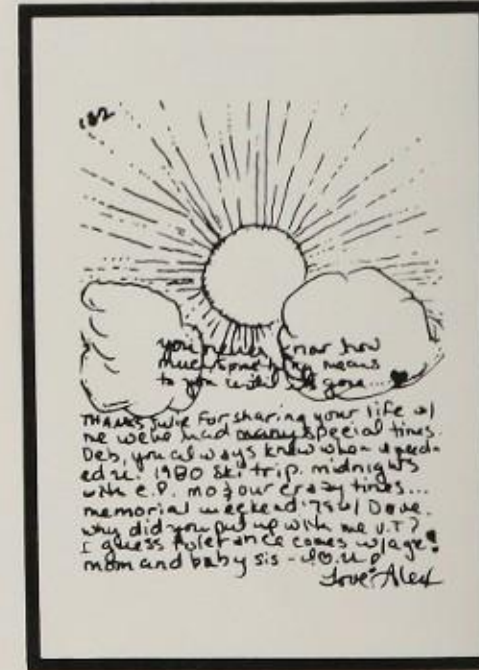 182
you never know how
much something means
to you until it's gone...
THANKS Julie For sharing your life w/
me weve had many special times.
Deb, you always knew when I need-
ed u. 1980 Ski trip. midnights
with E.P. mo & our crazy times...
memorial weekend '79 w/ Dave.
why did you put up with me U.T?
I guess tolerance comes w/age!
mom and baby sis - I ♡ U
Love Alex